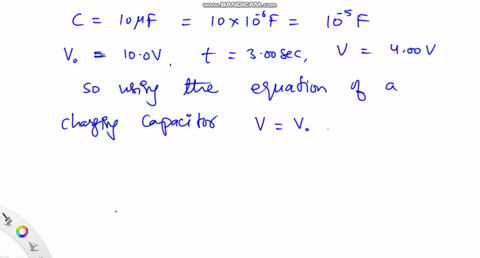 WWW.BANDICAM.COM
C = 10μF = 10 × 10⁻⁶F = 10⁻⁵ F
V₀ = 10.0V, t = 3.00sec, V = 4.00V
so using the equation of a
charging capacitor V = V₀